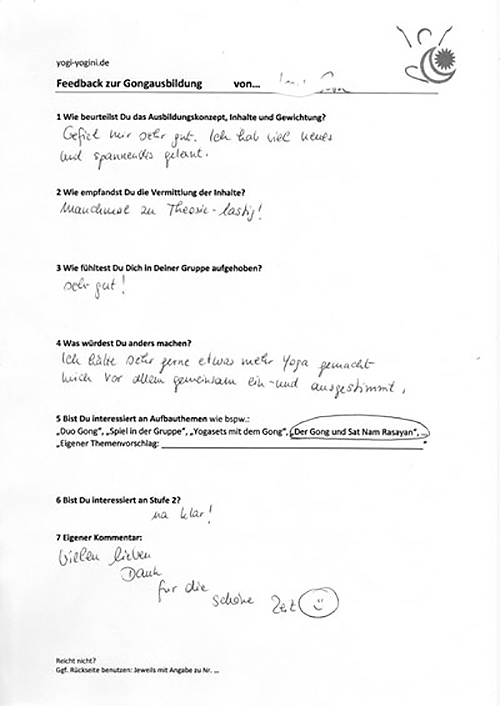 yogi-yogini.de
Feedback zur Gongausbildung von...
1 Wie beurteilst Du das Ausbildungskonzept, Inhalte und Gewichtung?
Gefiel mir sehr gut. Ich hab viel neues
und spannendes gelernt.
2 Wie empfandst Du die Vermittlung der Inhalte?
Manchmal zu Theorie-lastig!
3 Wie fühltest Du Dich in Deiner Gruppe aufgehoben?
sehr gut!
4 Was würdest Du anders machen?
Ich hätte sehr gerne etwas mehr Yoga gemacht
mich vor allem gemeinsam ein- und ausgestimmt.
5 Bist Du interessiert an Aufbauthemen wie bspw.:
„Duo Gong", „Spiel in der Gruppe", „Yogasets mit dem Gong", „Der Gong und Sat Nam Rasayan", ...
„Eigener Themenvorschlag:
6 Bist Du interessiert an Stufe 2?
na klar!
7 Eigener Kommentar:
Vielen lieben
Dank
für die
schöne Zeit
Reicht nicht?
Ggf. Rückseite benutzen: Jeweils mit Angabe zu Nr. ...